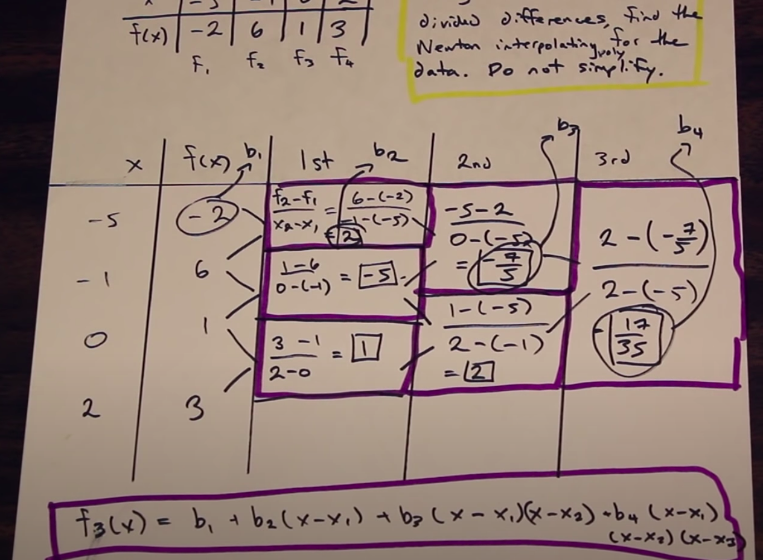 f(x) | -2 | 6 | 1 | 3
f₁ f₂ f₃ f₄
divided differences, find the
Newton interpolating poly for the
data. Do not simplify.
x f(x) b₁ 1st b₂ 2nd b₃ 3rd b₄
-5 -2 (f₂-f₁)/(x₂-x₁) = (6-(-2))/(-1-(-5)) = 2
(-5-2)/(0-(-5)) = -7/5
-1 6 (1-6)/(0-(-1)) = -5
(2-(-7/5))/(2-(-5))
0 1 (1-(-5))/(2-(-1)) = 2
17/35
(3-1)/(2-0) = 1
2 3
f₃(x) = b₁ + b₂(x-x₁) + b₃(x-x₁)(x-x₂) + b₄(x-x₁)
(x-x₂)(x-x₃